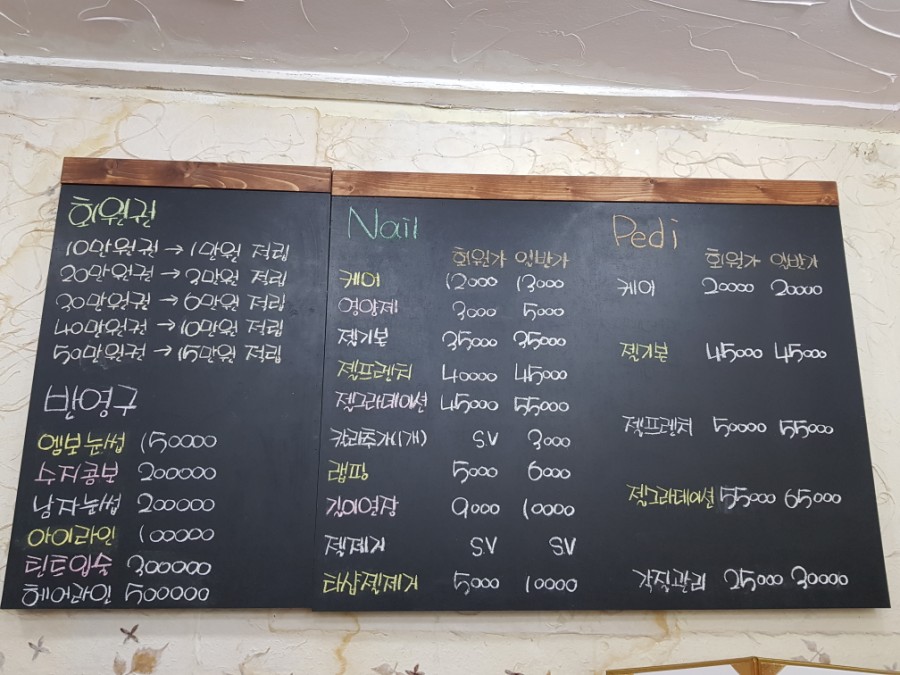 회원권
10만원권 → 1만원 적립
20만원권 → 3만원 적립
30만원권 → 6만원 적립
40만원권 → 10만원 적립
50만원권 → 15만원 적립
반영구
엠보눈썹 150000
수지콤보 200000
남자눈썹 200000
아이라인 100000
틴트입술 300000
헤어라인 500000
Nail
회원가 일반가
케어 12000 13000
영양제 3000 5000
젤기본 35000 35000
젤프렌치 40000 45000
젤그라데이션 45000 55000
칼라추가(1개) SV 3000
랩핑 5000 6000
길이연장 9000 10000
젤제거 SV SV
타샵젤제거 5000 10000
Pedi
회원가 일반가
케어 20000 20000
젤기본 45000 45000
젤프렌치 50000 55000
젤그라데이션 55000 65000
각질관리 25000 30000